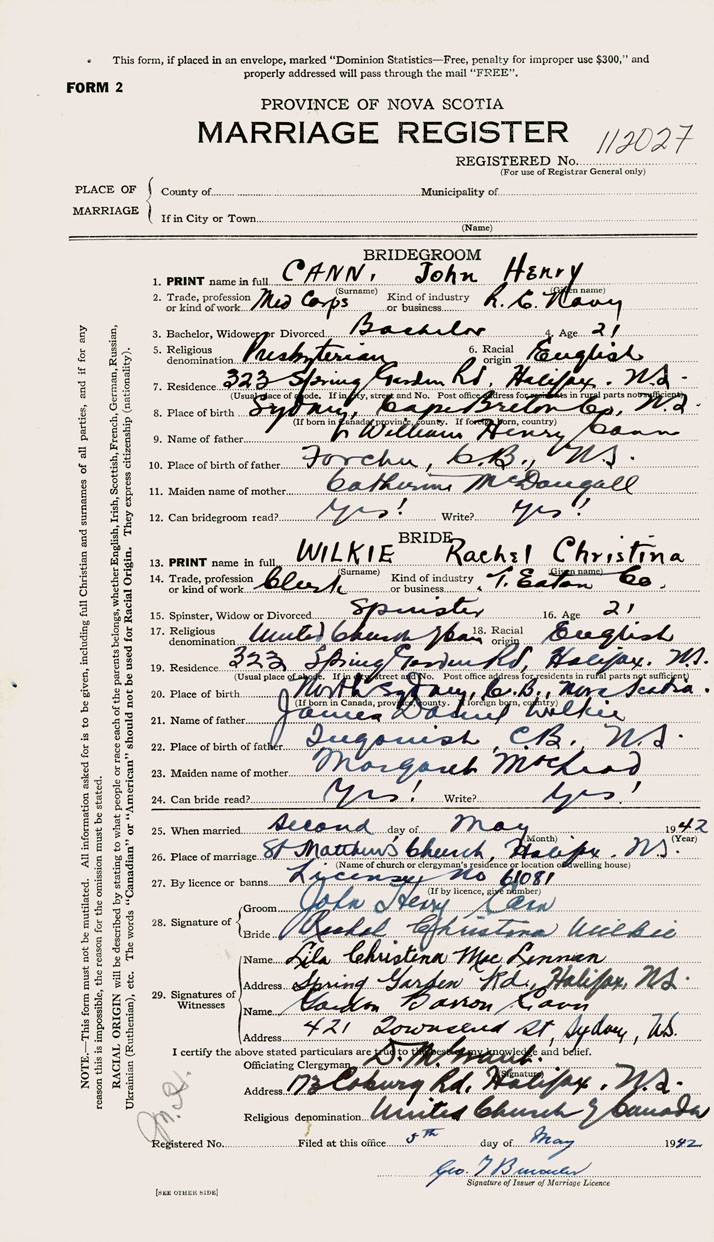 This form, if placed in an envelope, marked "Dominion Statistics—Free, penalty for improper use $300," and
properly addressed will pass through the mail "FREE".
FORM 2
PROVINCE OF NOVA SCOTIA
MARRIAGE REGISTER
112027
REGISTERED No.
(For use of Registrar General only)
PLACE OF MARRIAGE
County of Municipality of
If in City or Town
(Name)
BRIDEGROOM
1. PRINT name in full CANN, John Henry
(Surname) (Given name)
2. Trade, profession or kind of work Med Corps Kind of industry or business R. C. Navy
3. Bachelor, Widower or Divorced Bachelor 4. Age 21
5. Religious denomination Presbyterian 6. Racial origin English
7. Residence 323 Spring Garden Rd, Halifax. N.S.
(Usual place of abode. If in city, street and No. Post office address for residents in rural parts not sufficient)
8. Place of birth Sydney, Cape Breton Co, N.S.
(If born in Canada, province, county. If foreign born, country)
9. Name of father William Henry Cann
10. Place of father Forchu, C.B., N.S.
11. Maiden name of mother Catherine McDougall
12. Can bridegroom read? Yes! Write? Yes!
BRIDE
13. PRINT name in full WILKIE Rachel Christina
(Surname) (Given name)
14. Trade, profession or kind of work Clerk Kind of industry or business T. Eaton Co.
15. Spinster, Widow or Divorced Spinster 16. Age 21
17. Religious denomination United Church 18. Racial origin English
19. Residence 323 Spring Garden Rd, Halifax. N.S.
(Usual place of abode. If in city, street and No. Post office address for residents in rural parts not sufficient)
20. Place of birth North Sydney, C.B., Nova Scotia.
(If born in Canada, province, county. If foreign born, country)
21. Name of father James Daniel Wilkie
22. Place of birth of father Ingonish, C.B. N.S.
23. Maiden name of mother Margaret McLeod
24. Can bride read? Yes! Write? Yes!
25. When married second day of May 1942
(Month) (Year)
26. Place of marriage St Matthew's Church, Halifax. N.S.
(Name of church or clergyman's residence or location of dwelling house)
27. By licence or banns License No 61081
(If by licence, give number)
28. Signature of
Groom John Henry Cann
Bride Rachel Christina Wilkie
29. Signatures of Witnesses
Name Lila Christina MacLennan
Address Spring Garden Rd, Halifax, N.S.
Name Gordon Barron Cann
Address 421 Townsend St, Sydney, N.S.
I certify the above stated particulars are true to the best of my knowledge and belief.
Officiating Clergyman D. M. Grant.
(Signature)
Address 173 Coburg Rd, Halifax. N.S.
Religious denomination United Church of Canada
Registered No. Filed at this office 5th day of May 1942
Geo. T
Signature of Issuer of Marriage Licence
[SEE OTHER SIDE]
NOTE.—This form must not be mutilated. All information asked for is to be given, including full Christian and surnames of all parties, and if for any
reason this is impossible, the reason for the omission must be stated.
RACIAL ORIGIN will be described by stating to what people or race each of the parents belongs, whether English, Irish, Scottish, French, German, Russian,
Ukrainian (Ruthenian), etc. The words "Canadian" or "American" should not be used for Racial Origin. They express citizenship (nationality).